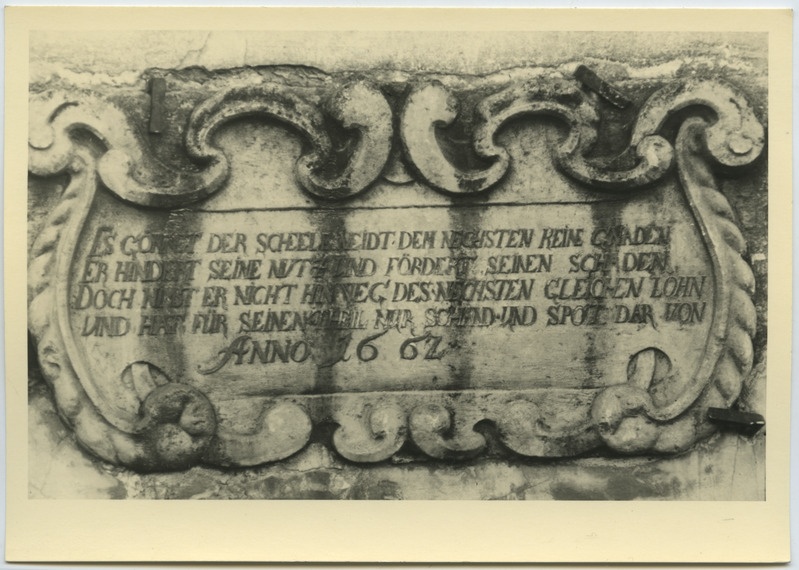 ES GÖNNET DER SCHEELE NEIDT· DEM NECHSTEN KEINE GNADEN
ER HINDERT SEINE NUTZ UND FÖRDERT SEINEN SCHADEN
DOCH NIMBT ER NICHT HINWEG DES·NECHSTEN GLEICHEN LOHN
UND HAT FÜR SEINEN THEIL NUR SCHAND·UND SPOTT DAR VON
ANNO 1662